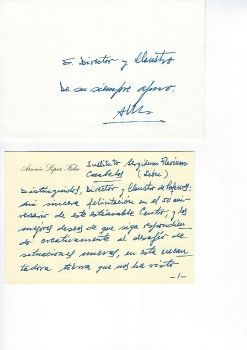 Sr. Director y Claustro
De su siempre afmo.
Antonio López Fabo
Instituto Bergidum Flavium
Cacabelos (León)
Distinguidos, Director y Claustro de Profesores:
mi sincera felicitación en el 50 ani-
versario de este estimable Centro, y los
mejores deseos de que siga respondien-
do creativamente al desafío de
situaciones nuevas, en esta encan-
tadora tierra que nos ha visto
-1-